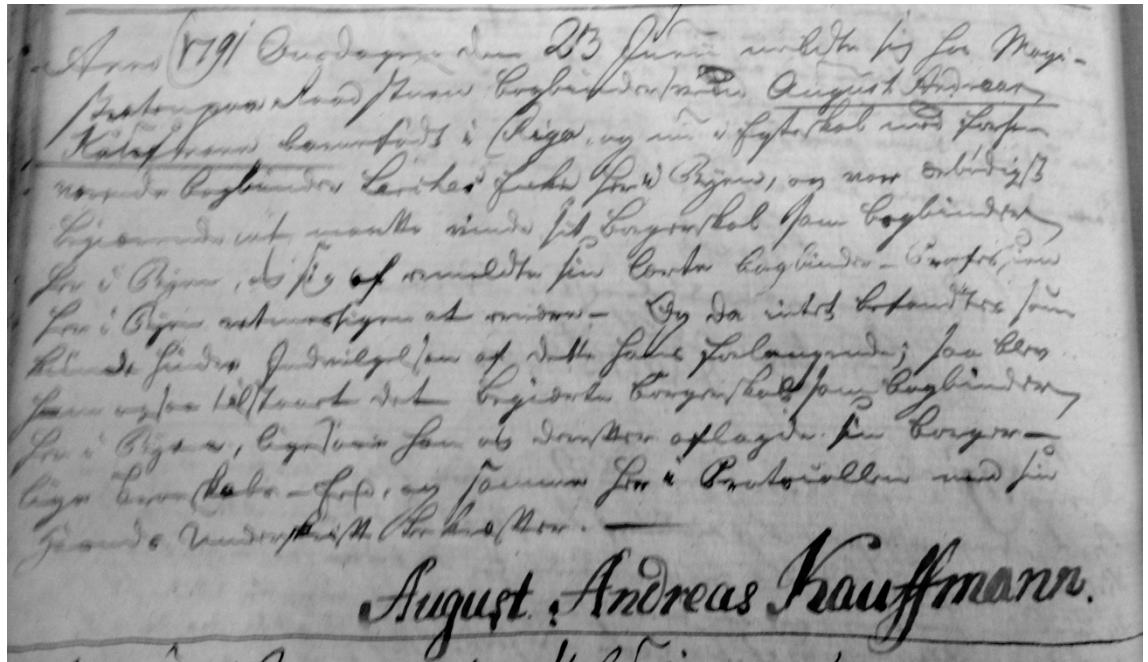 Anno 1791 Onsdagen den 23 Junii meldte sig for Magi-
straten paa Raad Stuen Bogbindersvend August Andreas
Kauffmann barnefødt i Riga, og nu i Egteskab med forhen-
værende Bogbinder Enke her i Byen, og var ærbødigst
begierende at maatte vinde sit Borgerskab som Bogbinder
her i Byen, og sig af remeldte sin lærte Bogbinder-Profession
her i Byen retmæssigen at nære. Og da intet befandtes som
kunde hindre Indvilgelsen af dette hans forlangende; saa blev
ham ogsaa tilstaaet det begierte Borgerskab som Bogbinder
her i Byen, ligesom han og derefter aflagde sin Borger-
lige Troeskabs-Eed, og samme her i Protocollen med sin
Haands Underskrift bekræfter.
August Andreas Kauffmann.